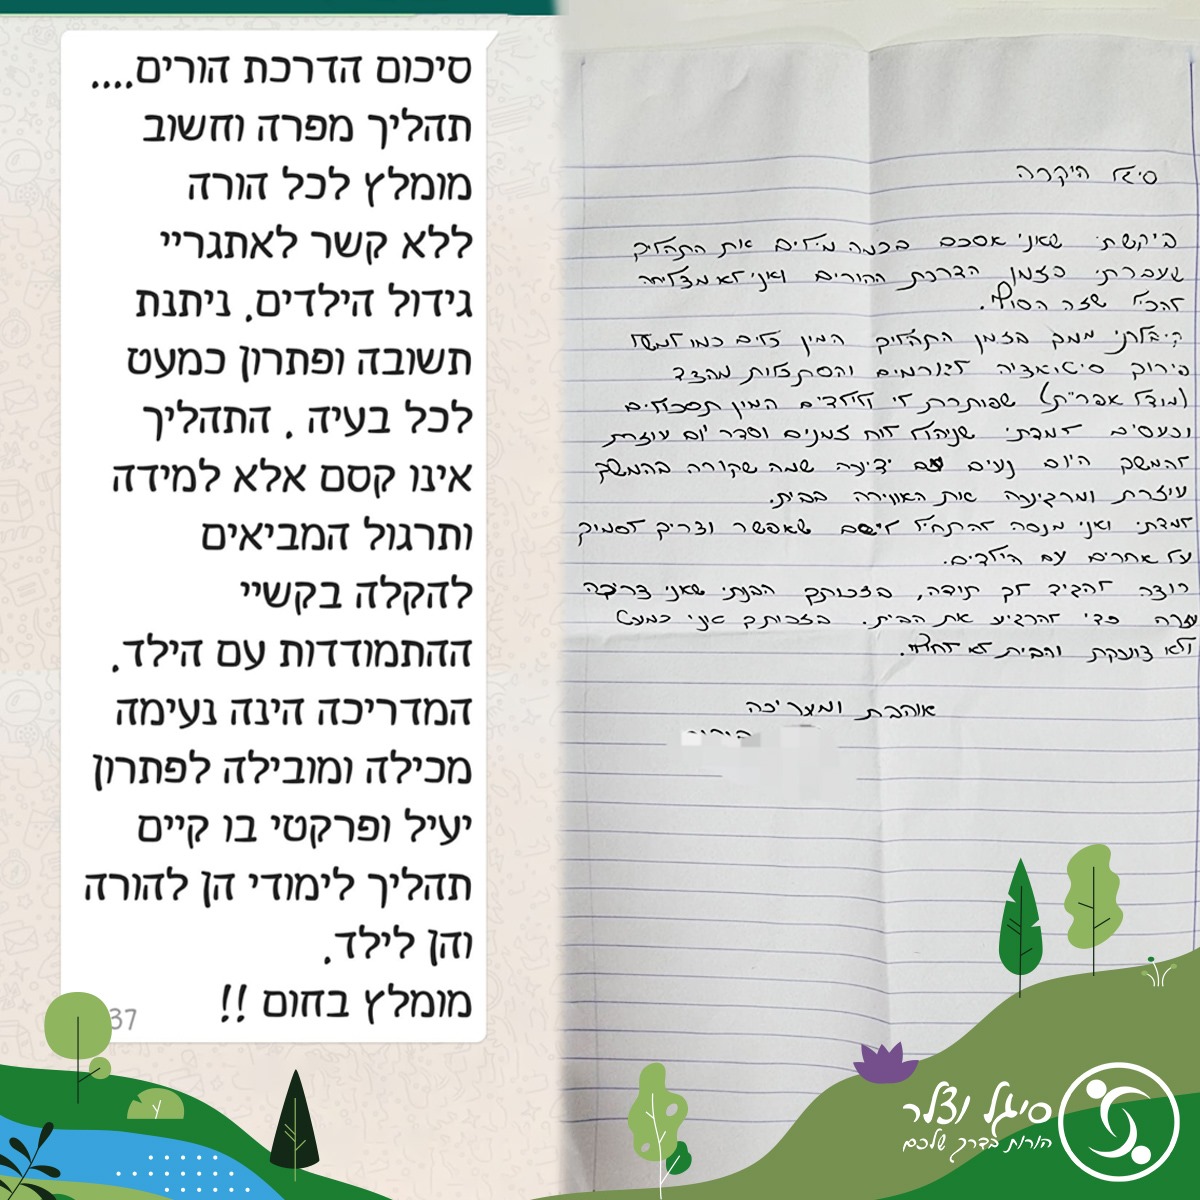 סיכום הדרכת הורים....
תהליך מפרה וחשוב
מומלץ לכל הורה
ללא קשר לאתגריי
גידול הילדים. ניתנת
תשובה ופתרון כמעט
לכל בעיה . התהליך
אינו קסם אלא למידה
ותרגול המביאים
להקלה בקשיי
ההתמודדות עם הילד.
המדריכה הינה נעימה
מכילה ומובילה לפתרון
יעיל ופרקטי בו קיים
תהליך לימודי הן להורה
והן לילד.
מומלץ בחום !!
37
סיגל היקרה
ביקשת שאני אסכם בכמה מילים את התהליך
שעברתי בזמן הדרכת ההורים ואני לא מצליחה
להכיל שזה הסוף.
קיבלתי ממך בזמן התהליך המון כלים כמו למשל
פירוק סיטואציה לגורמים והסתכלות מהצד
(מודל אפר״ת) שפותרת לי ולילדים המון תסכולים
וכעסים למדתי שניהול לוח זמנים וסדר יום עוזרת
להמשך היום נעים עם ידיעה שמה שקורה בהמשך
עוזרת ומרגיעה את האווירה בבית.
למדתי ואני מנסה להתחיל ליישם שאפשר וצריך לסמוך
על אחרים עם הילדים.
רוצה להגיד לך תודה, בזכותך הבנתי שאני צריכה
עזרה כדי להרגיע את הבית. בזכותך אני כמעט
ולא צועקת והבית לא לחוץ.
אוהבת ומעריכה
סיגל וצלר
הורות בדרך שלכם